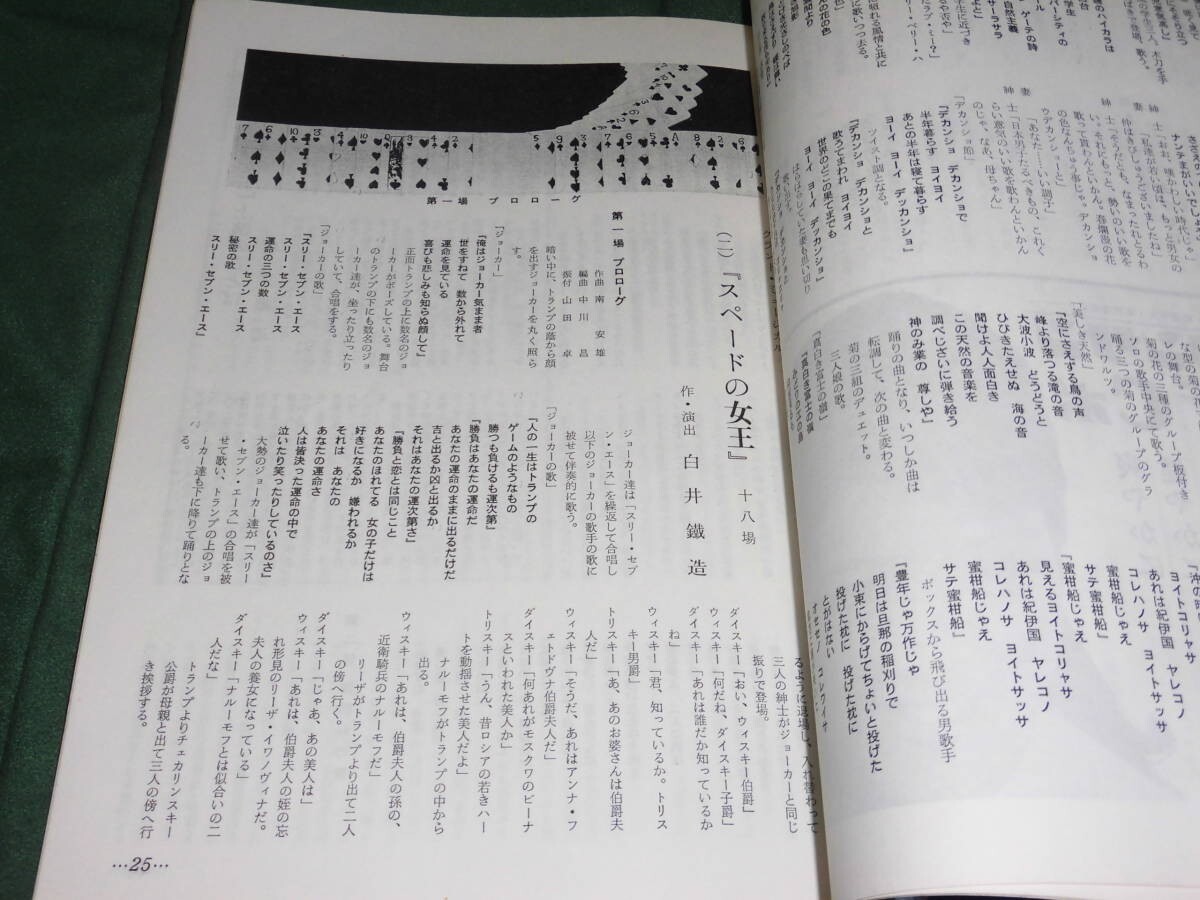 ささその
ナンテまがいいで
紳士「おお、懐かしい時代じゃ」
妻　「私達が若い頃は、もっと男女の
仲はきびしゅうございましたね」
紳士「そうだとも、なまったれとるわ
い。それにもっと、勢のいい歌を
歌って貰わんといかん。春爛漫の花
の色なんちゅう事じゃ。デカンショ
ゥデカンショーと」
妻　「あなた……いい調子」
紳士「日本男子たるべきもの、これく
らい意気のいい歌を歌わんといかん
のじゃ、なあ、母ちゃん」
「デカンショ節」
『デカンショ　デカンショで
半年暮らす　ヨイヨイ
あとの半年は寝て暮らす
ヨーイ　ヨーイ　デッカンショ』
ツイスト調となる。
『デカンショ　デカンショと
歌うてまわれ　ヨイヨイ
世界のどこの果てまでも
ヨーイ　ヨーイ　デッカンショ』
な型の菊の
レの舞台。
菊の花の三種のグループ板付き
ソロの歌手中央にて歌う。
踊る三つの菊のグループのグラ
ンドワルツ。
「美しき天然」
『空にさえずる鳥の声
峰より落つる滝の音
大波小波　どうどうと
ひびきたえせぬ　海の音
聞けよ人人面白き
この天然の音楽を
調べじざいに弾き給う
神のみ業の　尊しや』
踊りの曲となり、いつしか曲は
転調して、次の曲と変わる。
菊の三組のデュエット。
三人娘の歌。
「真白き富士の嶺」
『真白き富士の嶺
『沖の
ヨイトコリャサ
あれは紀伊国　ヤレコノ
コレハノサ　ヨイトサッサ
蜜柑船じゃえ
サテ蜜柑船』
『蜜柑船じゃえ
見えるヨイトコリャサ
あれは紀伊国　ヤレコノ
コレハノサ　ヨイトサッサ
蜜柑船じゃえ
サテ蜜柑船』
ボックスから飛び出る男歌手
『豊年じゃ万作じゃ
明日は旦那の稲刈りで
小束にからげてちょいと投げた
投げた枕に　投げた枕に
とがはない
オセセノ　コレワイサ
第一場　プロローグ
（二）『スペードの女王』　十八場
作・演出　白井鐵造
第一場　プロローグ
作曲　南　安雄
編曲　中川　昌
振付　山田　卓
暗い中に、トランプの蔭から顔
を出すジョーカーを丸く照ら
す。
「ジョーカー」
『俺はジョーカー気まま者
世をすねて　数から外れて
運命を見ている
喜びも悲しみも知らぬ顔して』
正面トランプの上に数名のジョ
ーカーがポーズしている。舞台
のトランプの下にも数名のジョ
ーカー達が、坐ったり立ったり
していて、合唱をする。
「ジョーカーの歌」
『スリー・セブン・エース
スリー・セブン・エース
運命の三つの数
スリー・セブン・エース
秘密の歌
スリー・セブン・エース』
ジョーカー達は「スリー・セブ
ン・エース」を繰返して合唱し
以下のジョーカーの歌手の歌に
被せて伴奏的に歌う。
「ジョーカーの歌」
『人の一生はトランプの
ゲームのようなもの
勝つも負けるも運次第』
『勝負はあなたの運命だ
あなたの運命のままに出るだけだ
吉と出るか凶と出るか
それはあなたの運次第さ』
『勝負と恋とは同じこと
あなたのほれてる　女の子だけは
好きになるか　嫌われるか
それは　あなたの
あなたの運命さ
人は皆決った運命の中で
泣いたり笑ったりしているのさ』
大勢のジョーカー達が「スリー
・セブン・エース」の合唱を被
せて歌い、トランプの上のジョ
ーカー達も下に降りて踊りとな
る。
るように退場し、入れ替わって
三人の紳士がジョーカーと同じ
振りで登場。
ダイスキー「おい、ウィスキー伯爵」
ウィスキー「何だね、ダイスキー子爵」
ダイスキー「あれは誰だか知っているか
ね」
ウィスキー「君、知っているか。トリス
キー男爵」
トリスキー「あ、あのお婆さんは伯爵夫
人だ」
ウィスキー「そうだ、あれはアンナ・フ
ェトドヴナ伯爵夫人だ」
ダイスキー「何あれがモスクワのビーナ
スといわれた美人か」
トリスキー「うん、昔ロシアの若きハー
トを動揺させた美人だよ」
ナルーモフがトランプの中から
出る。
ウィスキー「あれは、伯爵夫人の孫の、
近衛騎兵のナルーモフだ」
リーザがトランプより出て二人
の傍へ行く。
ダイスキー「じゃあ、あの美人は」
ウィスキー「あれは、伯爵夫人の姪の忘
れ形見のリーザ・イワノヴィナだ。
夫人の養女になっている」
ダイスキー「ナルーモフとは似合いの二
人だな」
トランプよりチェカリンスキー
公爵が母親と出て三人の傍へ行
き挨拶する。
…25…